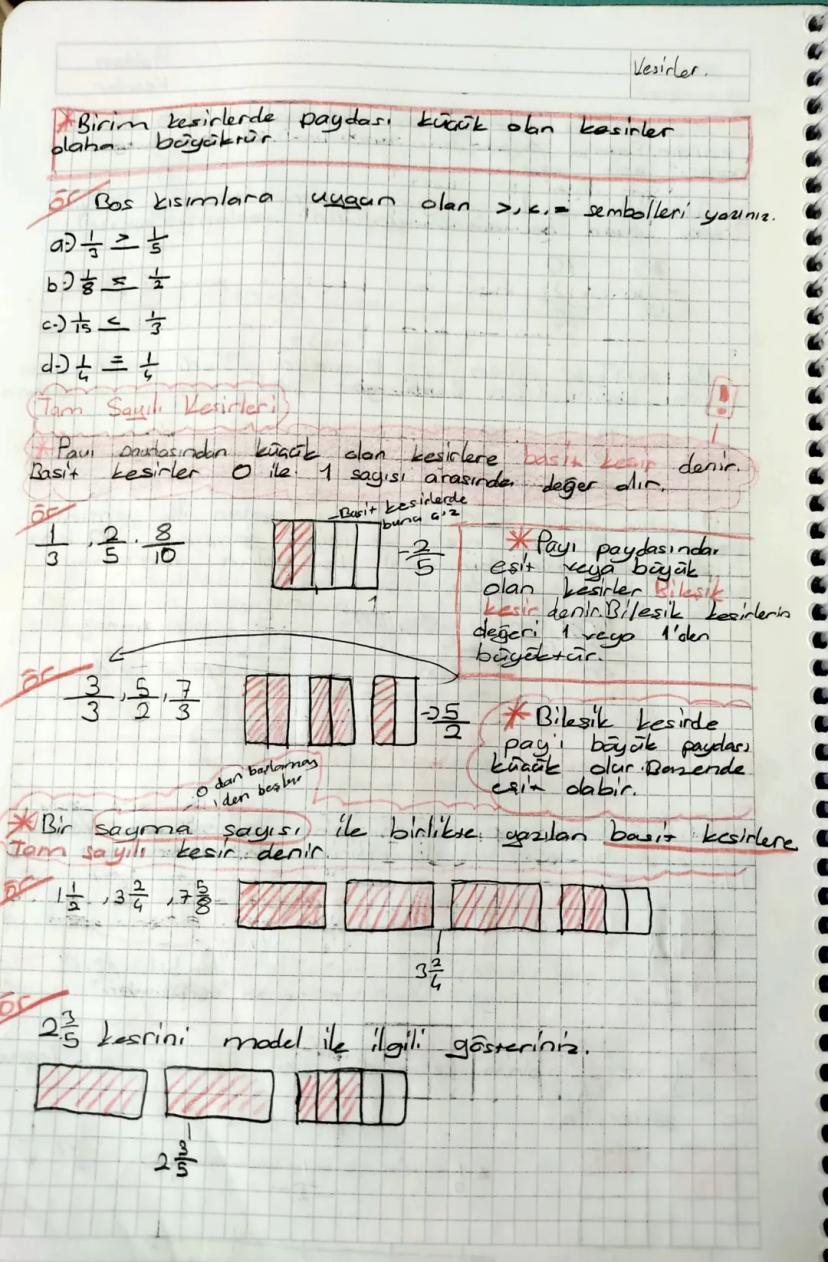 Kesirler.
*Birim kesirlerde paydası küçük olan kesirler
daha büyüktür.
ör Bos kısımlara uygun olan >, <, = sembolleri yazınız.
a-) 1/3 > 1/5
b-) 1/8 < 1/2
c-) 1/15 < 1/3
d-) 1/4 = 1/4
Tam Sayılı Kesirleri
!
*Payı paydasından küçük olan kesirlere basit kesir denir.
Basit kesirler 0 ile 1 sayısı arasında değer alır.
ör
1/3, 2/5, 8/10
Basit kesirlerde
buna
2/5
1
*Payı paydasından
eşit veya büyük
olan kesirler Bileşik
kesir denir. Bileşik kesirlerin
değeri 1 veya 1'den
büyüktür.
ör
3/3, 5/2, 7/3
5/2
*Bileşik kesirde
pay'ı büyük paydası
küçük olur. Bazende
eşit olabir.
0 dan başlamaz
1 den başlar
*Bir sayma sayısı ile birlikte yazılan basit kesirlere
Tam sayılı kesir denir.
ör 1 1/2, 3 2/4, 7 5/8
3 2/4
ör
2 3/5 kesrini model ile ilgili gösteriniz.
2 3/5